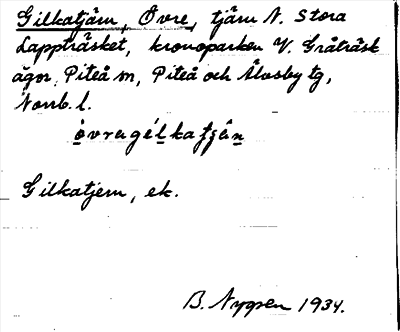 Gilkatjärn, Övre, tjärn N. Stora
Lappträsket, kronoparken V. Gråträsk
ägor, Piteå m, Piteå och Älvsby tg,
Norrb. l.
Gilkatjern, ek.
B. Nygren 1934.